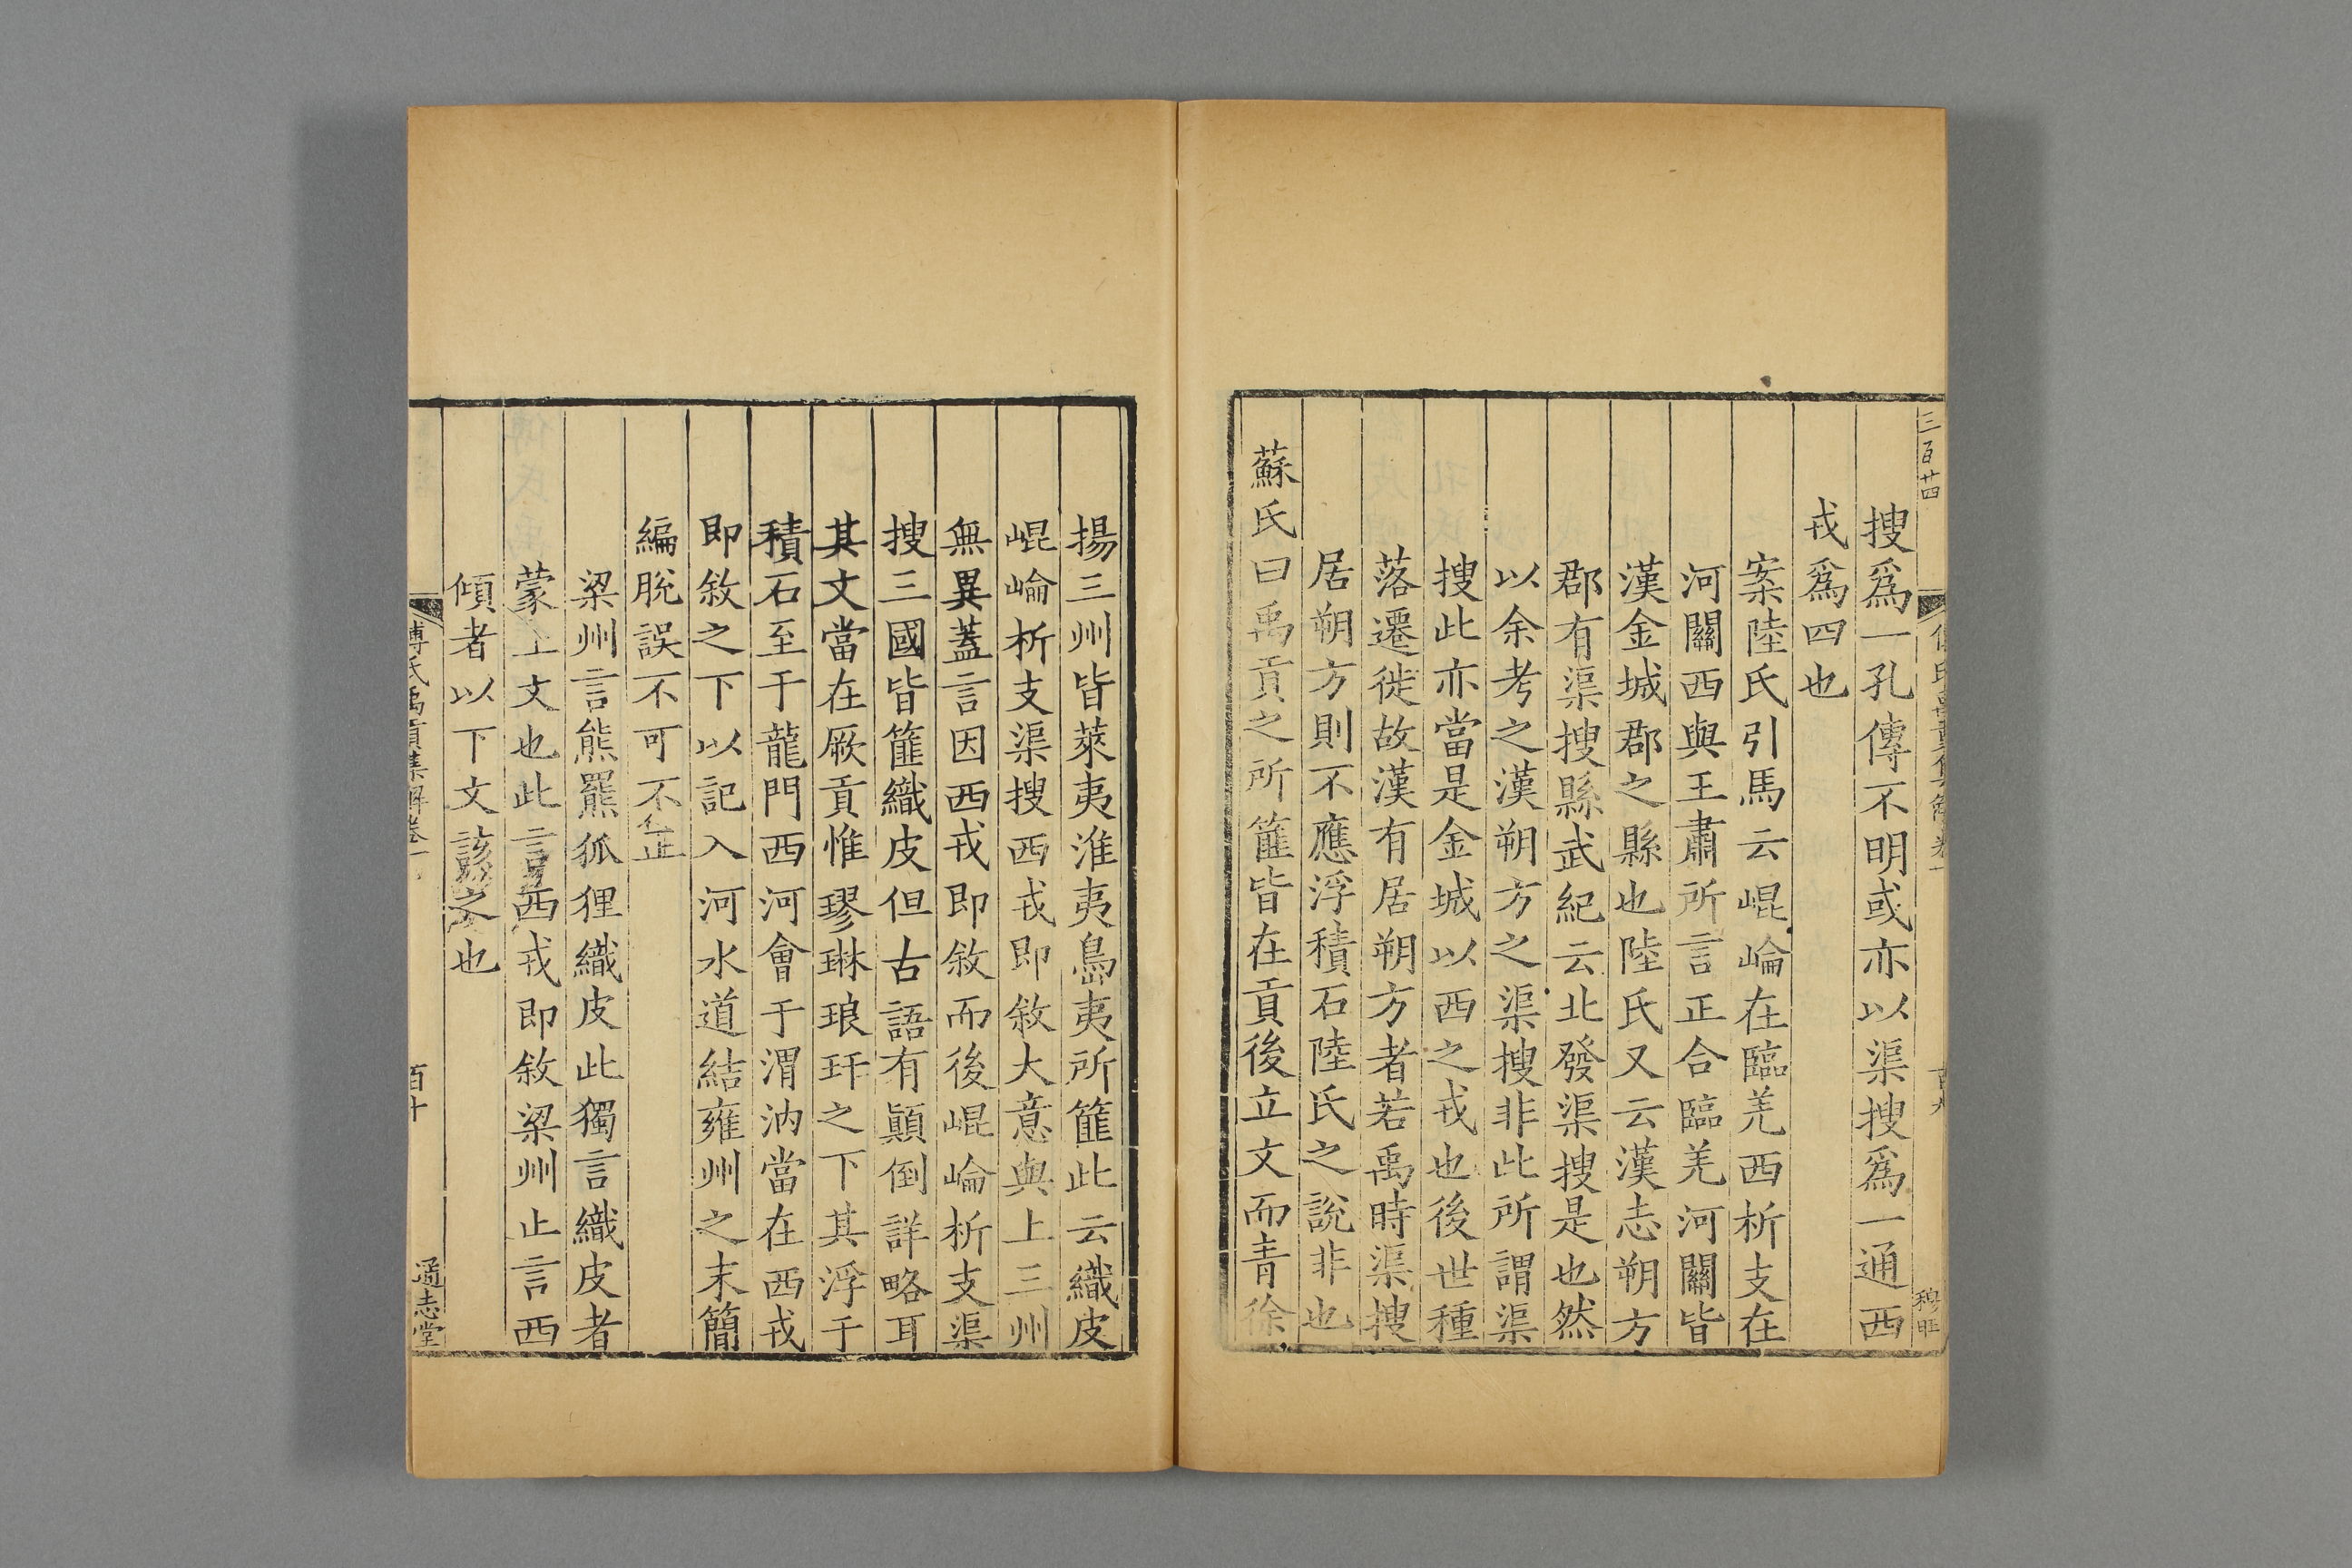 三百廿四
搜爲一孔傳不明或亦以渠搜爲一通西
戎爲四也
案陸氏引馬云崐崘在臨羌西析支在
河關西與王肅所言正合臨羌河關皆
漢金城郡之縣也陸氏又云漢志朔方
郡有渠搜縣武紀云北發渠搜是也然
以余考之漢朔方之渠搜非此所謂渠
搜此亦當是金城以西之戎也後世種
落遷徙故漢有居朔方者若禹時渠搜
居朔方則不應浮積石陸氏之說非也
蘇氏曰禹貢之所篚皆在貢後立文而青徐
揚三州皆萊夷淮夷鳥夷所篚此云織皮
崐崘析支渠搜西戎即敘大意與上三州
無異蓋言因西戎即敘而後崐崘析支渠
搜三國皆篚織皮但古語有顛倒詳略耳
其文當在厥貢惟璆琳琅玕之下其浮于
積石至于龍門西河會于渭汭當在西戎
即敘之下以記入河水道結雍州之末簡
編脫誤不可不正
梁州言熊羆狐狸織皮此獨言織皮者
蒙上文也此言西戎即敘梁州止言西
傾者以下文該之也
傅氏禹貢集解卷一
百十
通志堂